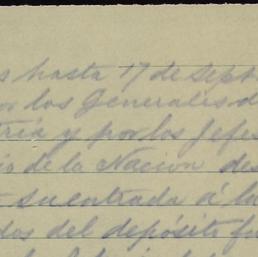 s hasta 17 de Sept
or los Generales d
tria y por los Jefes
io de la Nacion des
su entrada á la
dos del depósito fu